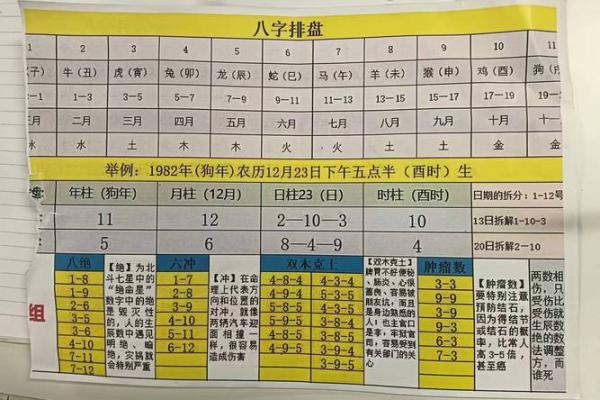 八字排盘
1 2 3 4 5 6 7 8 9 10 11
子) 牛(丑) 虎(寅) 兔(卯) 龙(辰) 蛇(巳) 马(午) 羊(未) 猴(申) 鸡(酉) 狗(戌
—1 1—3 3—5 5—7 7—9 9—11 11—13 13—15 15—17 17—19 19—
二月 三月 四月 五月 六月 七月 八月 九月 十月 十一
水 土 木 木 土 火 火 土 金 金
举例:1982年(狗年)农历12月23日下午五点半(酉时)生
年柱(狗年) 月柱(12月) 日柱23(日) 时柱(酉时) 日期的拆分:1-12号
11 12 2—10—3 10 13日拆解1-10-3
5 6 8—4—9 4 20日拆解2—10
八绝
1-8
2-7
2-8
2-9
3-6
4-10
7-11
7-12
【绝】为北
斗七星中的
“绝命星”
数字中的绝
是毁灭性
的,人的生
辰数中遇见
明绝、暗
绝,灾祸就
会特别严重
六冲
1-7
2-8
3-9
4-10
5-11
6-12
【冲】在命
理上代表方
向和位置的
对冲,就像
两辆汽车迎
面相撞一
样,很容易
造成伤害
双木克土
4-8-4 4-3-4
4-8-5 4-3-5
4-9-4 5-3-4
4-9-5 5-3-5
5-9-5 3-4-8
5-8-4 3-4-9
5-8-5 3-5-8
3-9-5
【双木克土】
脾胃不好便秘
、肠炎、心很
善良、容易被
朋友坑,而且
是身边熟悉的
人!也主食口
是非,牢狱官
司,容易受到
有关部门的关
心】
肿瘤数
3-3
9-9
3-9
9-3
1-3
6-3
7-3
【肿瘤数】
要特别注意
预防结石,
因为得结节
或结石的概
率,比常人
高3-5倍,
甚至癌
两数相
伤,只
受伤比
受伤就
生辰数
绝的数
法调整
方,而
谁死
组